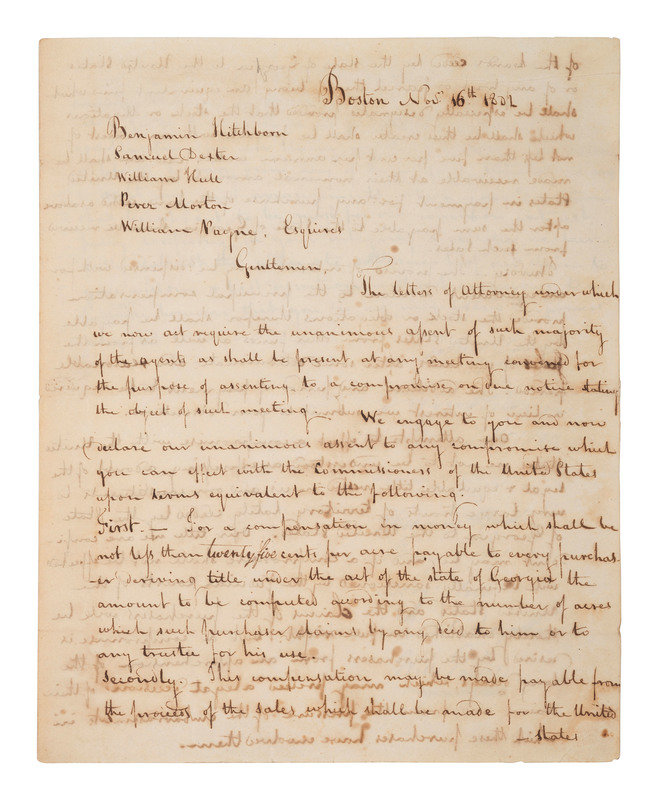 Boston Nov 16th 1802
Benjamin Hitchborn
Samuel Dexter
William Hull
Perez Morton
William Payne. Esquires
Gentlemen
The letters of Attorney under which
we now act require the unanimous assent of such majority
of the agents as shall be present at any meeting convened for
the purpose of assenting to a compromise on due notice stating
the object of such meeting. We engage to you and now
declare our unanimous assent to any compromise which
you can effect with the Commissioners of the United States
upon terms equivalent to the following.
First. — For a compensation in money which shall be
not less than twenty five cents per acre payable to every purchas-
er deriving title under the act of the state of Georgia the
amount to be computed according to the number of acres
which such purchaser claims by any deed to him or to
any trustee for his use.
Secondly. This compensation may be made payable from
the proceeds of the sales which shall be made for the United
States